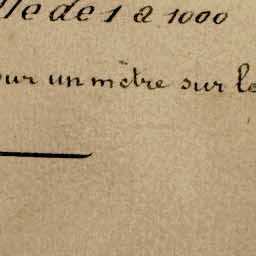 lle de 1 à 1000
our un mètre sur le